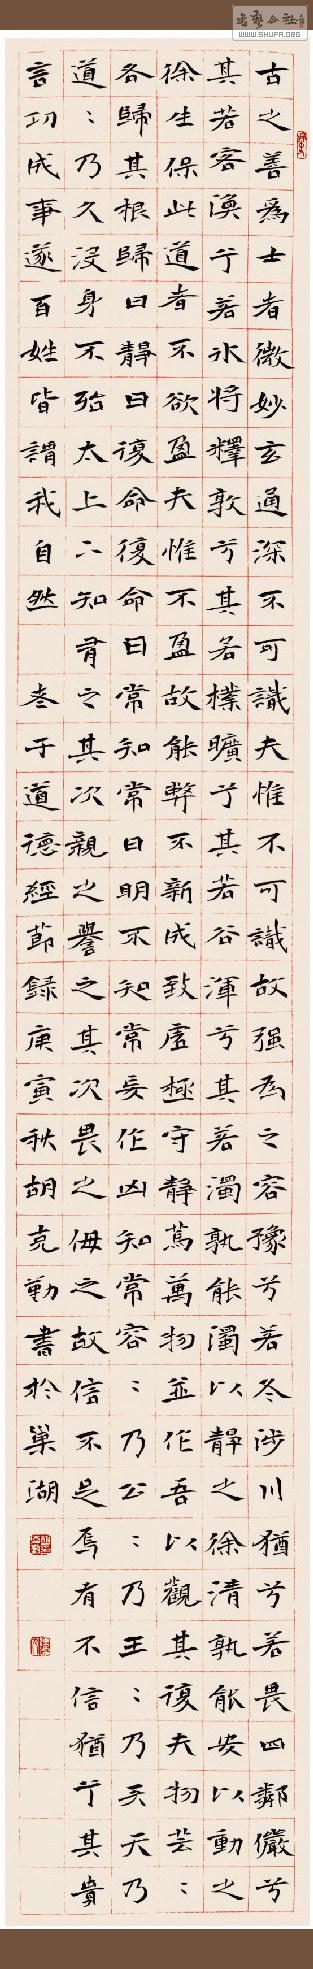 古之善為士者微妙玄通深不可識夫惟不可識故强為之容豫兮若冬涉川猶兮若畏四鄰儼兮
其若客渙兮若冰將釋敦兮其若樸曠兮其若谷渾兮其若濁孰能濁以靜之徐清孰能安以動之
徐生保此道者不欲盈夫惟不盈故能弊不新成致虛極守靜篤萬物並作吾以觀其復夫物芸〻
各歸其根歸曰靜曰復命復命曰常知常曰明不知常妄作凶知常容〻乃公〻乃王〻乃天天乃
道〻乃久没身不殆太上下知有之其次親之譽之其次畏之侮之故信不足焉有不信猶兮其貴
言功成事遂百姓皆謂我自然 老子道德經節録庚寅秋胡克勤書於巢湖
WWW.SHUFA.ORG